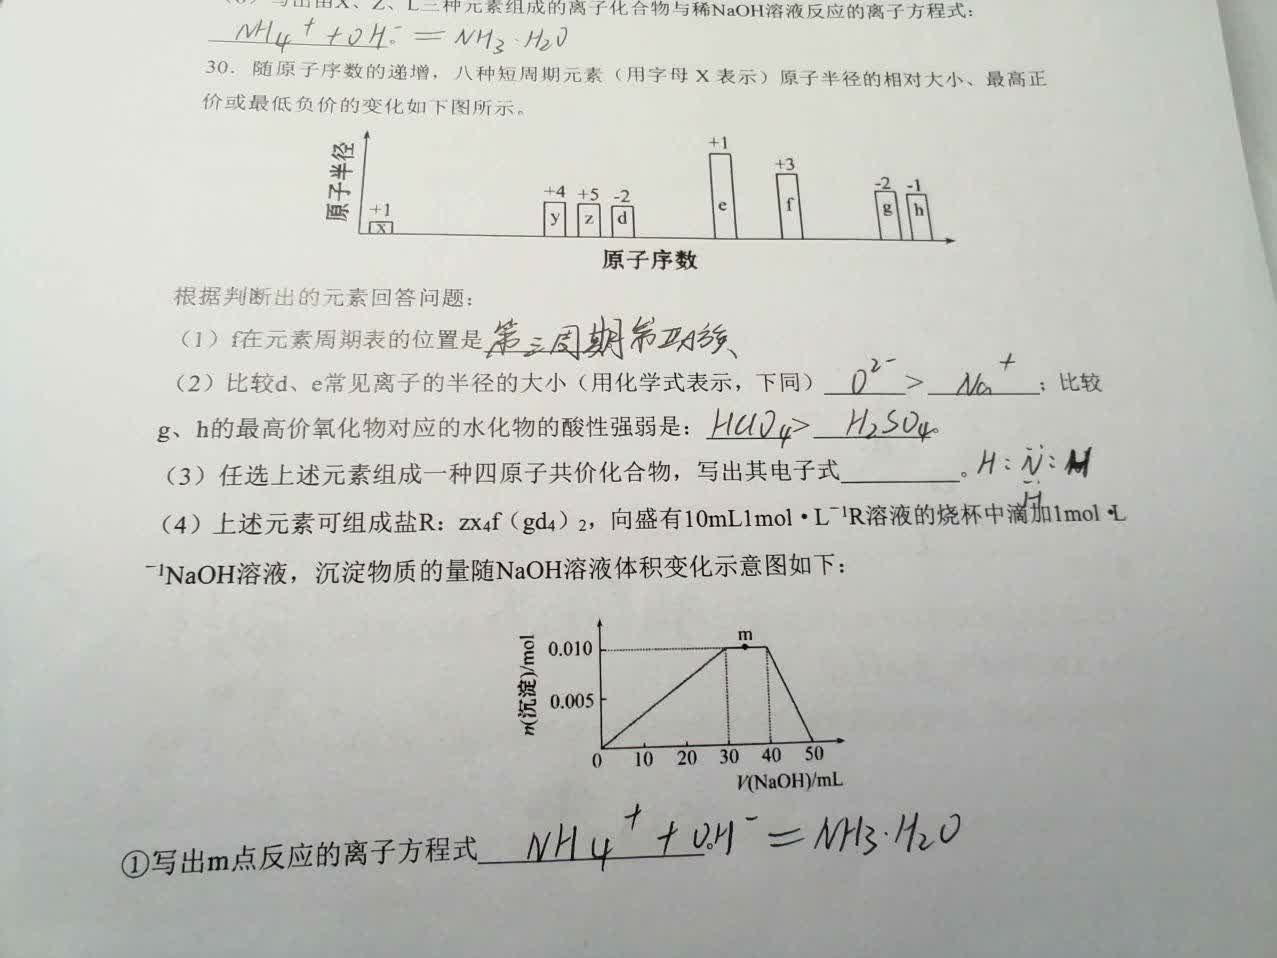 写出由X、Z、L三种元素组成的离子化合物与稀NaOH溶液反应的离子方程式：
NH₄⁺+OH⁻=NH₃·H₂O
30．随原子序数的递增，八种短周期元素（用字母 X 表示）原子半径的相对大小、最高正
价或最低负价的变化如下图所示。
原子半径
+1 +4 +5 -2 +1 +3 -2 -1
x y z d e f g h
原子序数
根据判断出的元素回答问题：
（1）f在元素周期表的位置是第三周期第ⅢA族、
（2）比较d、e常见离子的半径的大小（用化学式表示，下同）O²⁻ > Na⁺；比较
g、h的最高价氧化物对应的水化物的酸性强弱是：HClO₄> H₂SO₄。
（3）任选上述元素组成一种四原子共价化合物，写出其电子式________。H:N:H
H
（4）上述元素可组成盐R：zx₄f（gd₄）₂，向盛有10mL1mol·L⁻¹R溶液的烧杯中滴加1mol·L
⁻¹NaOH溶液，沉淀物质的量随NaOH溶液体积变化示意图如下：
n(沉淀)/mol
m
0.010
0.005
0 10 20 30 40 50
V(NaOH)/mL
①写出m点反应的离子方程式 NH₄⁺+OH⁻=NH₃·H₂O